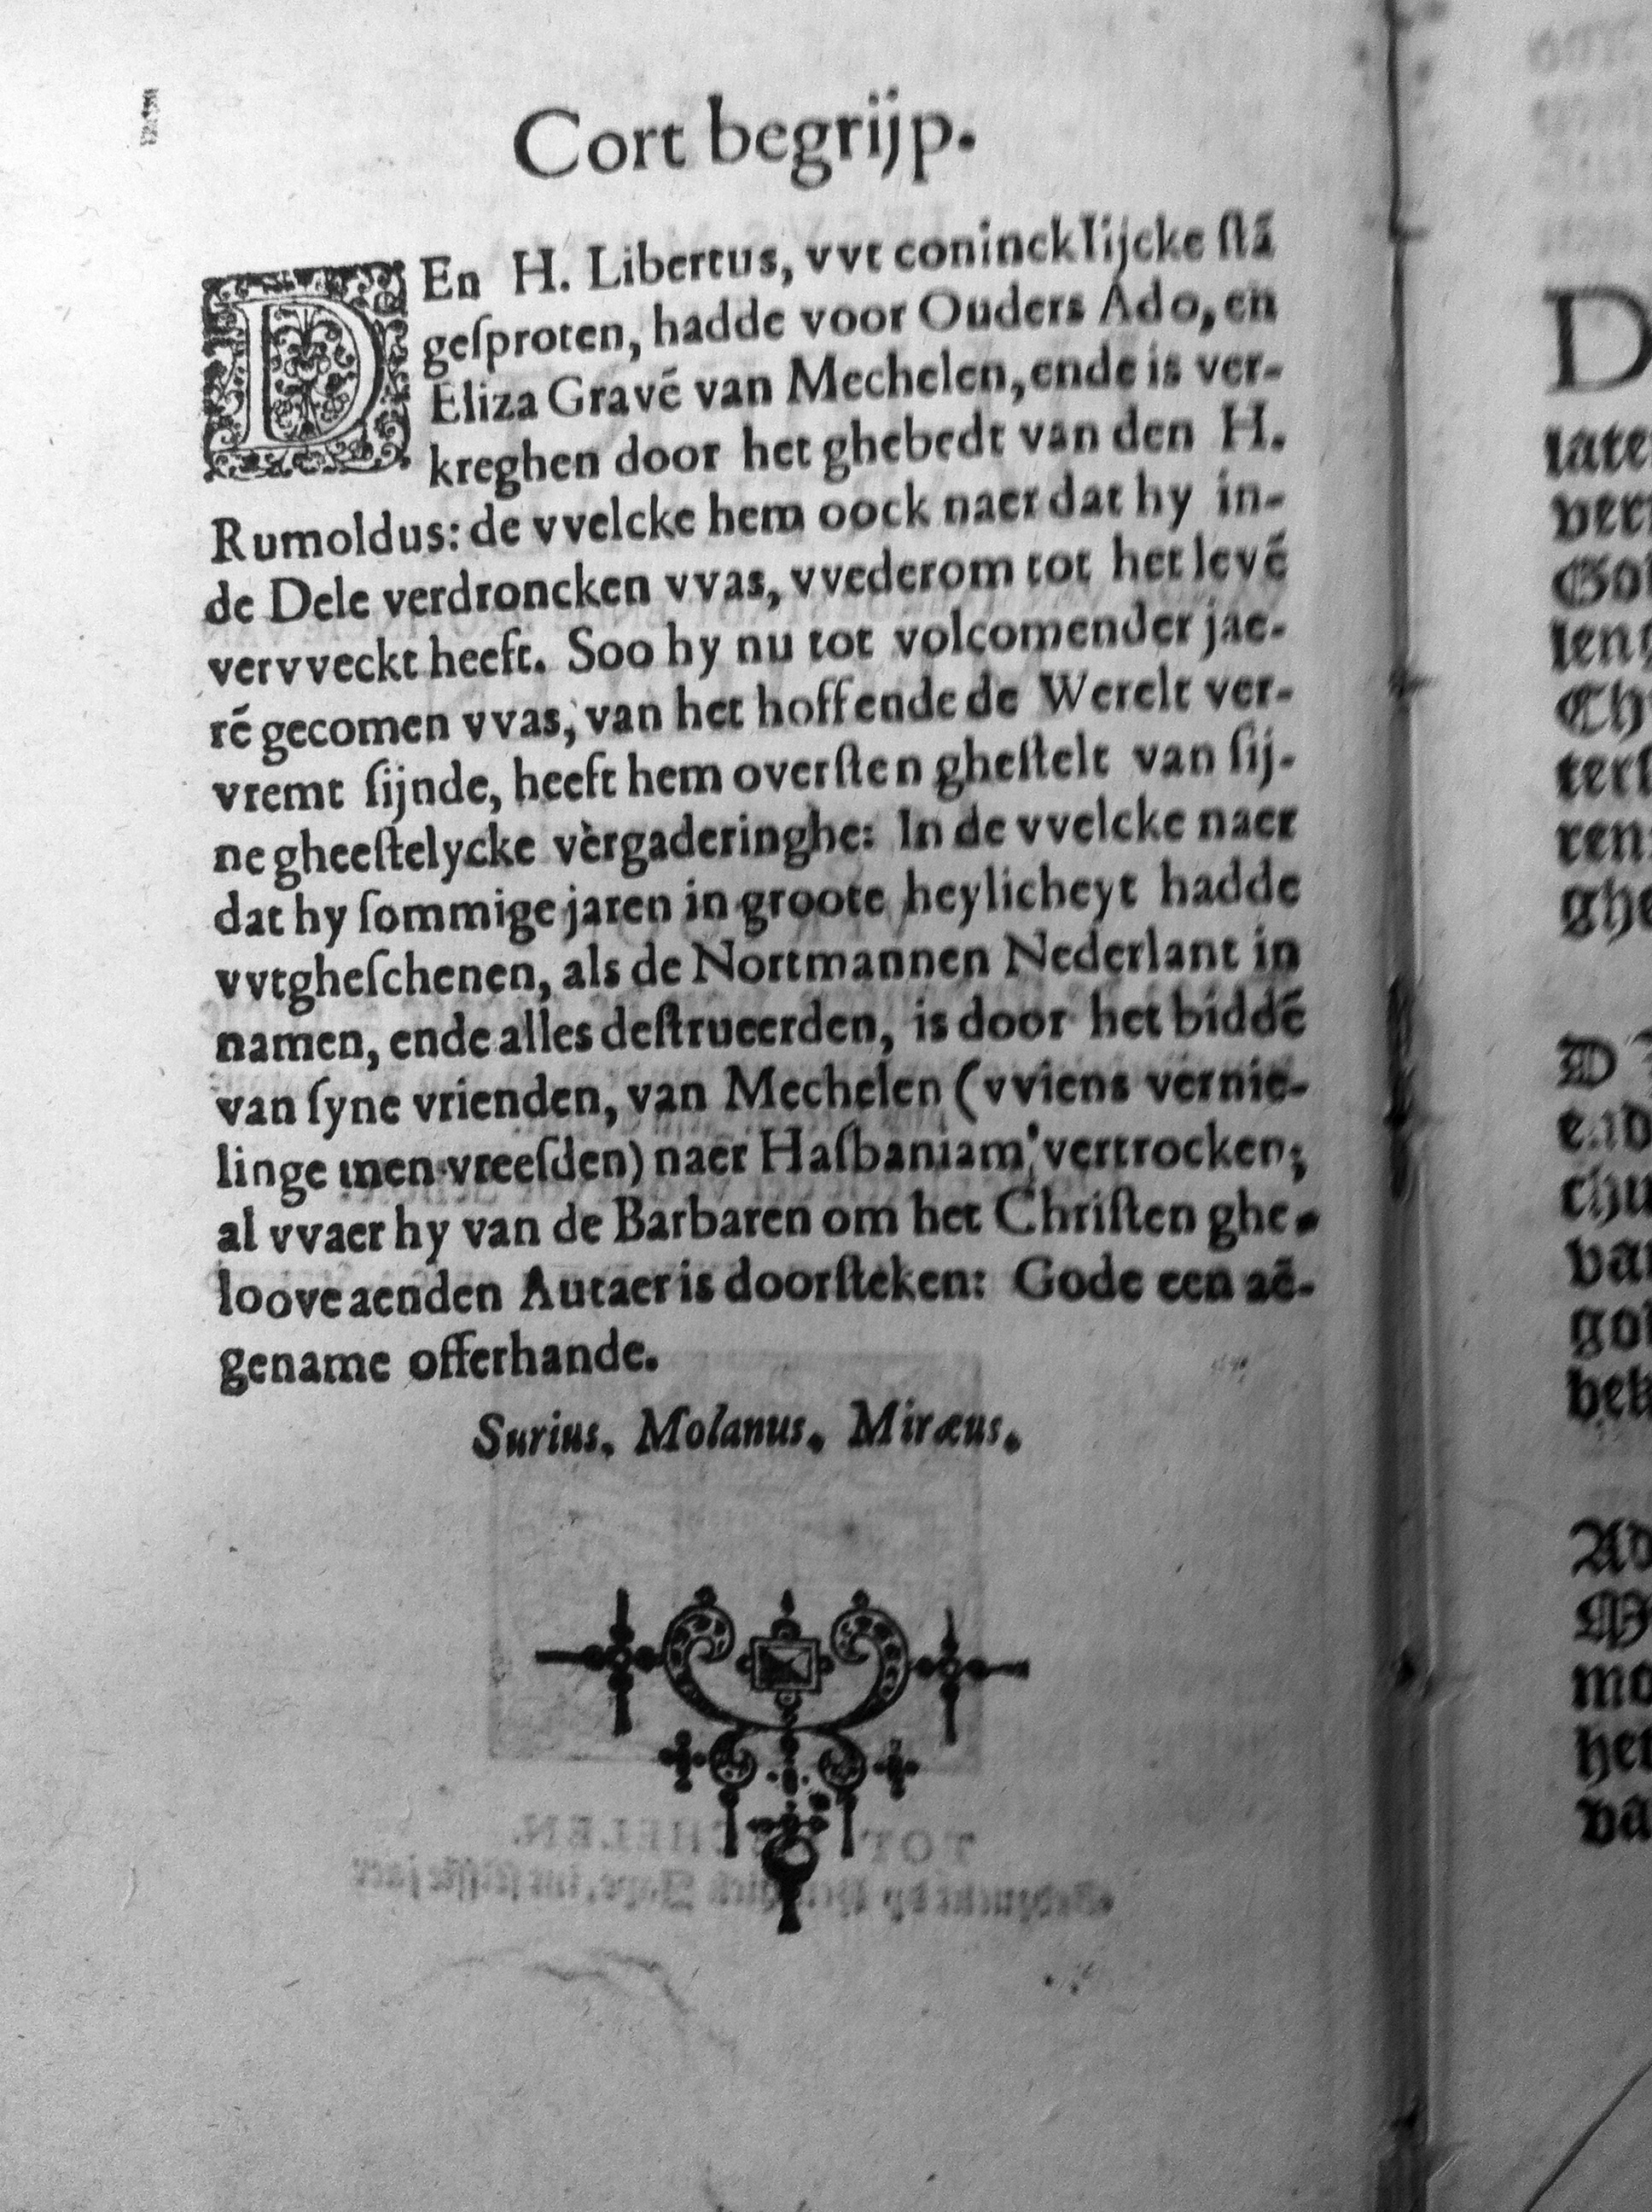 Cort begrijp.
DEn H. Libertus, vvt conincklijcke ſtã
geſproten, hadde voor Ouders Ado, en
Eliza Gravẽ van Mechelen, ende is ver-
kreghen door het ghebedt van den H.
Rumoldus: de vvelcke hem oock naer dat hy in-
de Dele verdroncken vvas, vvederom tot het levẽ
vervveckt heeft. Soo hy nu tot volcomender jae-
rẽ gecomen vvas, van het hoff ende de Werelt ver-
vremt ſijnde, heeft hem overſten gheſtelt van ſij-
ne gheeſtelycke vergaderinghe: In de vvelcke naer
dat hy ſommige jaren in groote heylicheyt hadde
vvtgheſchenen, als de Nortmannen Nederlant in
namen, ende alles deſtrueerden, is door het biddẽ
van ſyne vrienden, van Mechelen (vviens vernie-
linge men vreeſden) naer Haſbaniam vertrocken;
al vvaer hy van de Barbaren om het Chriſten ghe-
loove aenden Autaer is doorſteken: Gode een aẽ-
gename offerhande.
Surius. Molanus. Miræus.
D
late
ver
len
Ch
ren
ghe
D
chu
van
Ad
mo
het
va